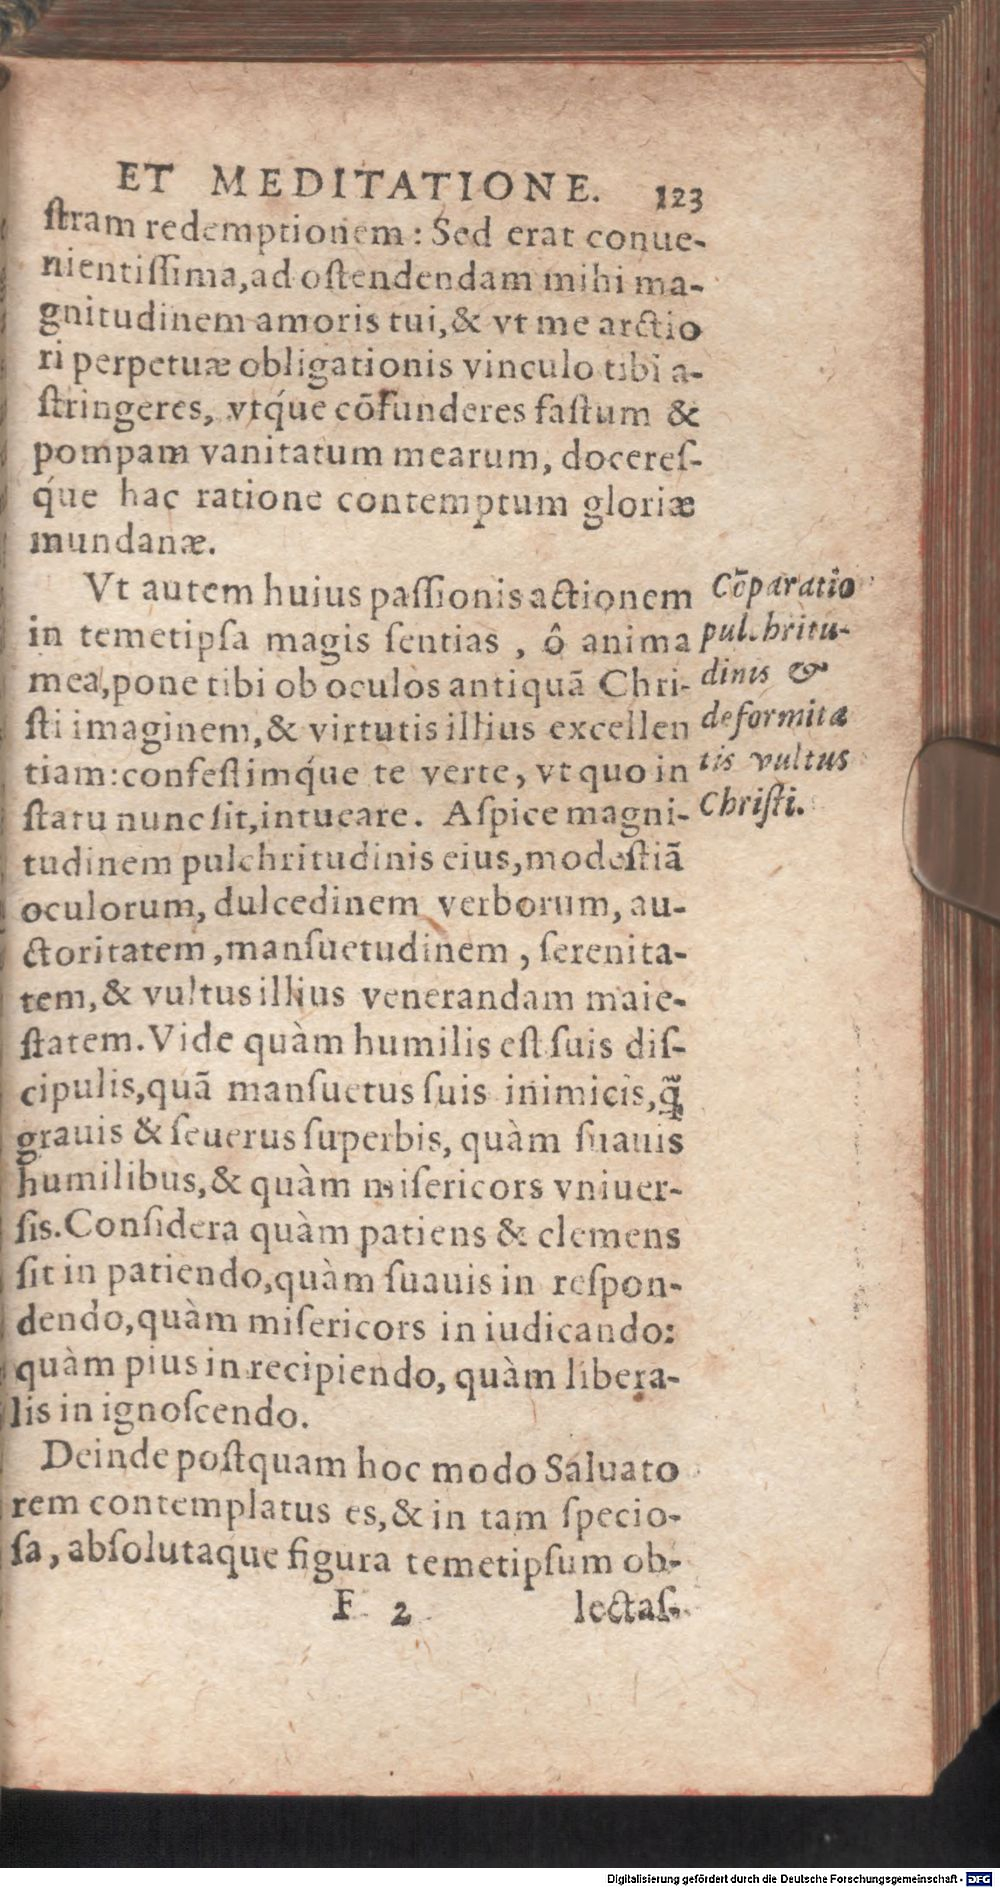 ET MEDITATIONE. 123
ſtram redemptionem: Sed erat conue-
nientiſſima,ad oſtendendam mihi ma-
gnitudinem amoris tui,& vt me arctio
ri perpetuæ obligationis vinculo tibi a-
ſtringeres, vtq́ue cōfunderes faſtum &
pompam vanitatum mearum, docereſ-
q́ue hac ratione contemptum gloriæ
mundanæ.
Vt autem huius paſſionis actionem
in temetipſa magis ſentias , ô anima
mea,pone tibi ob oculos antiquā Chri-
ſti imaginem,& virtutis illius excellen
tiam:confeſtimq́ue te verte, vt quo in
ſtatu nunc ſit,intueare. Aſpice magni-
tudinem pulchritudinis eius,modeſtiā
oculorum, dulcedinem verborum, au-
ctoritatem ,manſuetudinem , ſerenita-
tem,& vultus illius venerandam maie-
ſtatem.Vide quàm humilis eſt ſuis diſ-
cipulis,quā manſuetus ſuis inimicis,q̃
grauis & ſeuerus ſuperbis, quàm ſuauis
humilibus,& quàm miſericors vniuer-
ſis.Conſidera quàm patiens & clemens
ſit in patiendo,quàm ſuauis in reſpon-
dendo,quàm miſericors in iudicando:
quàm pius in recipiendo, quàm libera-
lis in ignoſcendo.
Deinde poſtquam hoc modo Saluato
rem contemplatus es,& in tam ſpecio-
ſa, abſolutaque figura temetipſum ob-
F 2 lectaſ-
Cōparatio
pulchritu-
dinis &
deformita
tis vultus
Chriſti.
Digitalisierung gefördert durch die Deutsche Forschungsgemeinschaft - DFG